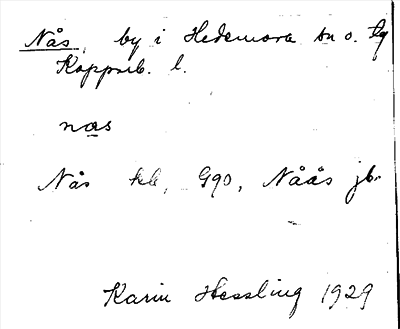 Nås, by i Hedemora sn o. tg
Kopparb. l.
nas
Nås kb, G90, Nåås jb.
Karin Hessling 1929